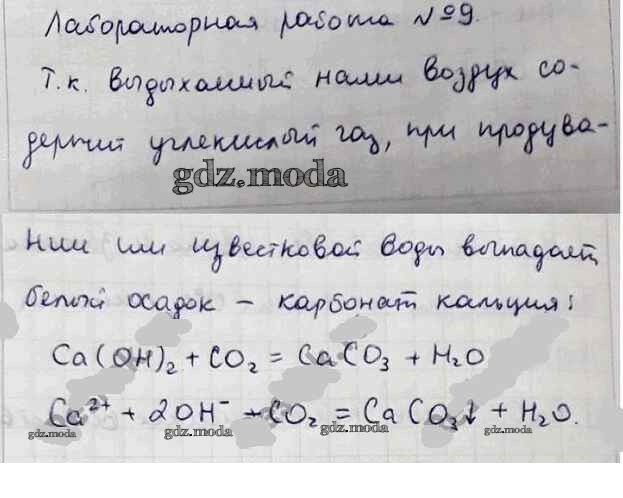 Лабораторная работа №9.
Т.к. выдыхаемый нами воздух со-
держит углекислый газ, при продува-
gdz.moda
нии им известковой воды выпадает
белый осадок – карбонат кальция:
Ca(OH)₂ + CO₂ = CaCO₃ + H₂O
Ca²⁺ + 2OH⁻ + CO₂ = CaCO₃↓ + H₂O.
gdz.moda gdz.moda gdz.moda gdz.moda